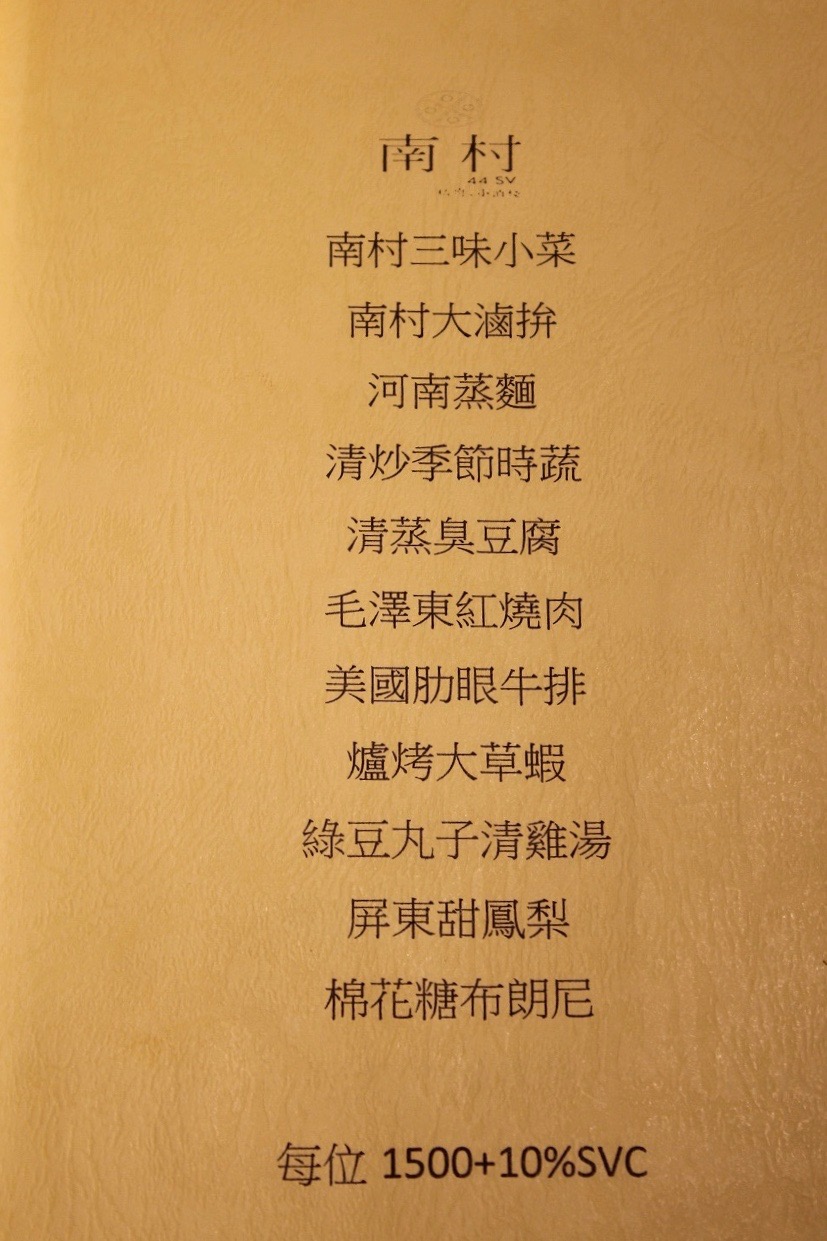 南村
44 SV
南村三味小菜
南村大滷拚
河南蒸麵
清炒季節時蔬
清蒸臭豆腐
毛澤東紅燒肉
美國肋眼牛排
爐烤大草蝦
綠豆丸子清雞湯
屏東甜鳳梨
棉花糖布朗尼
每位 1500+10%SVC